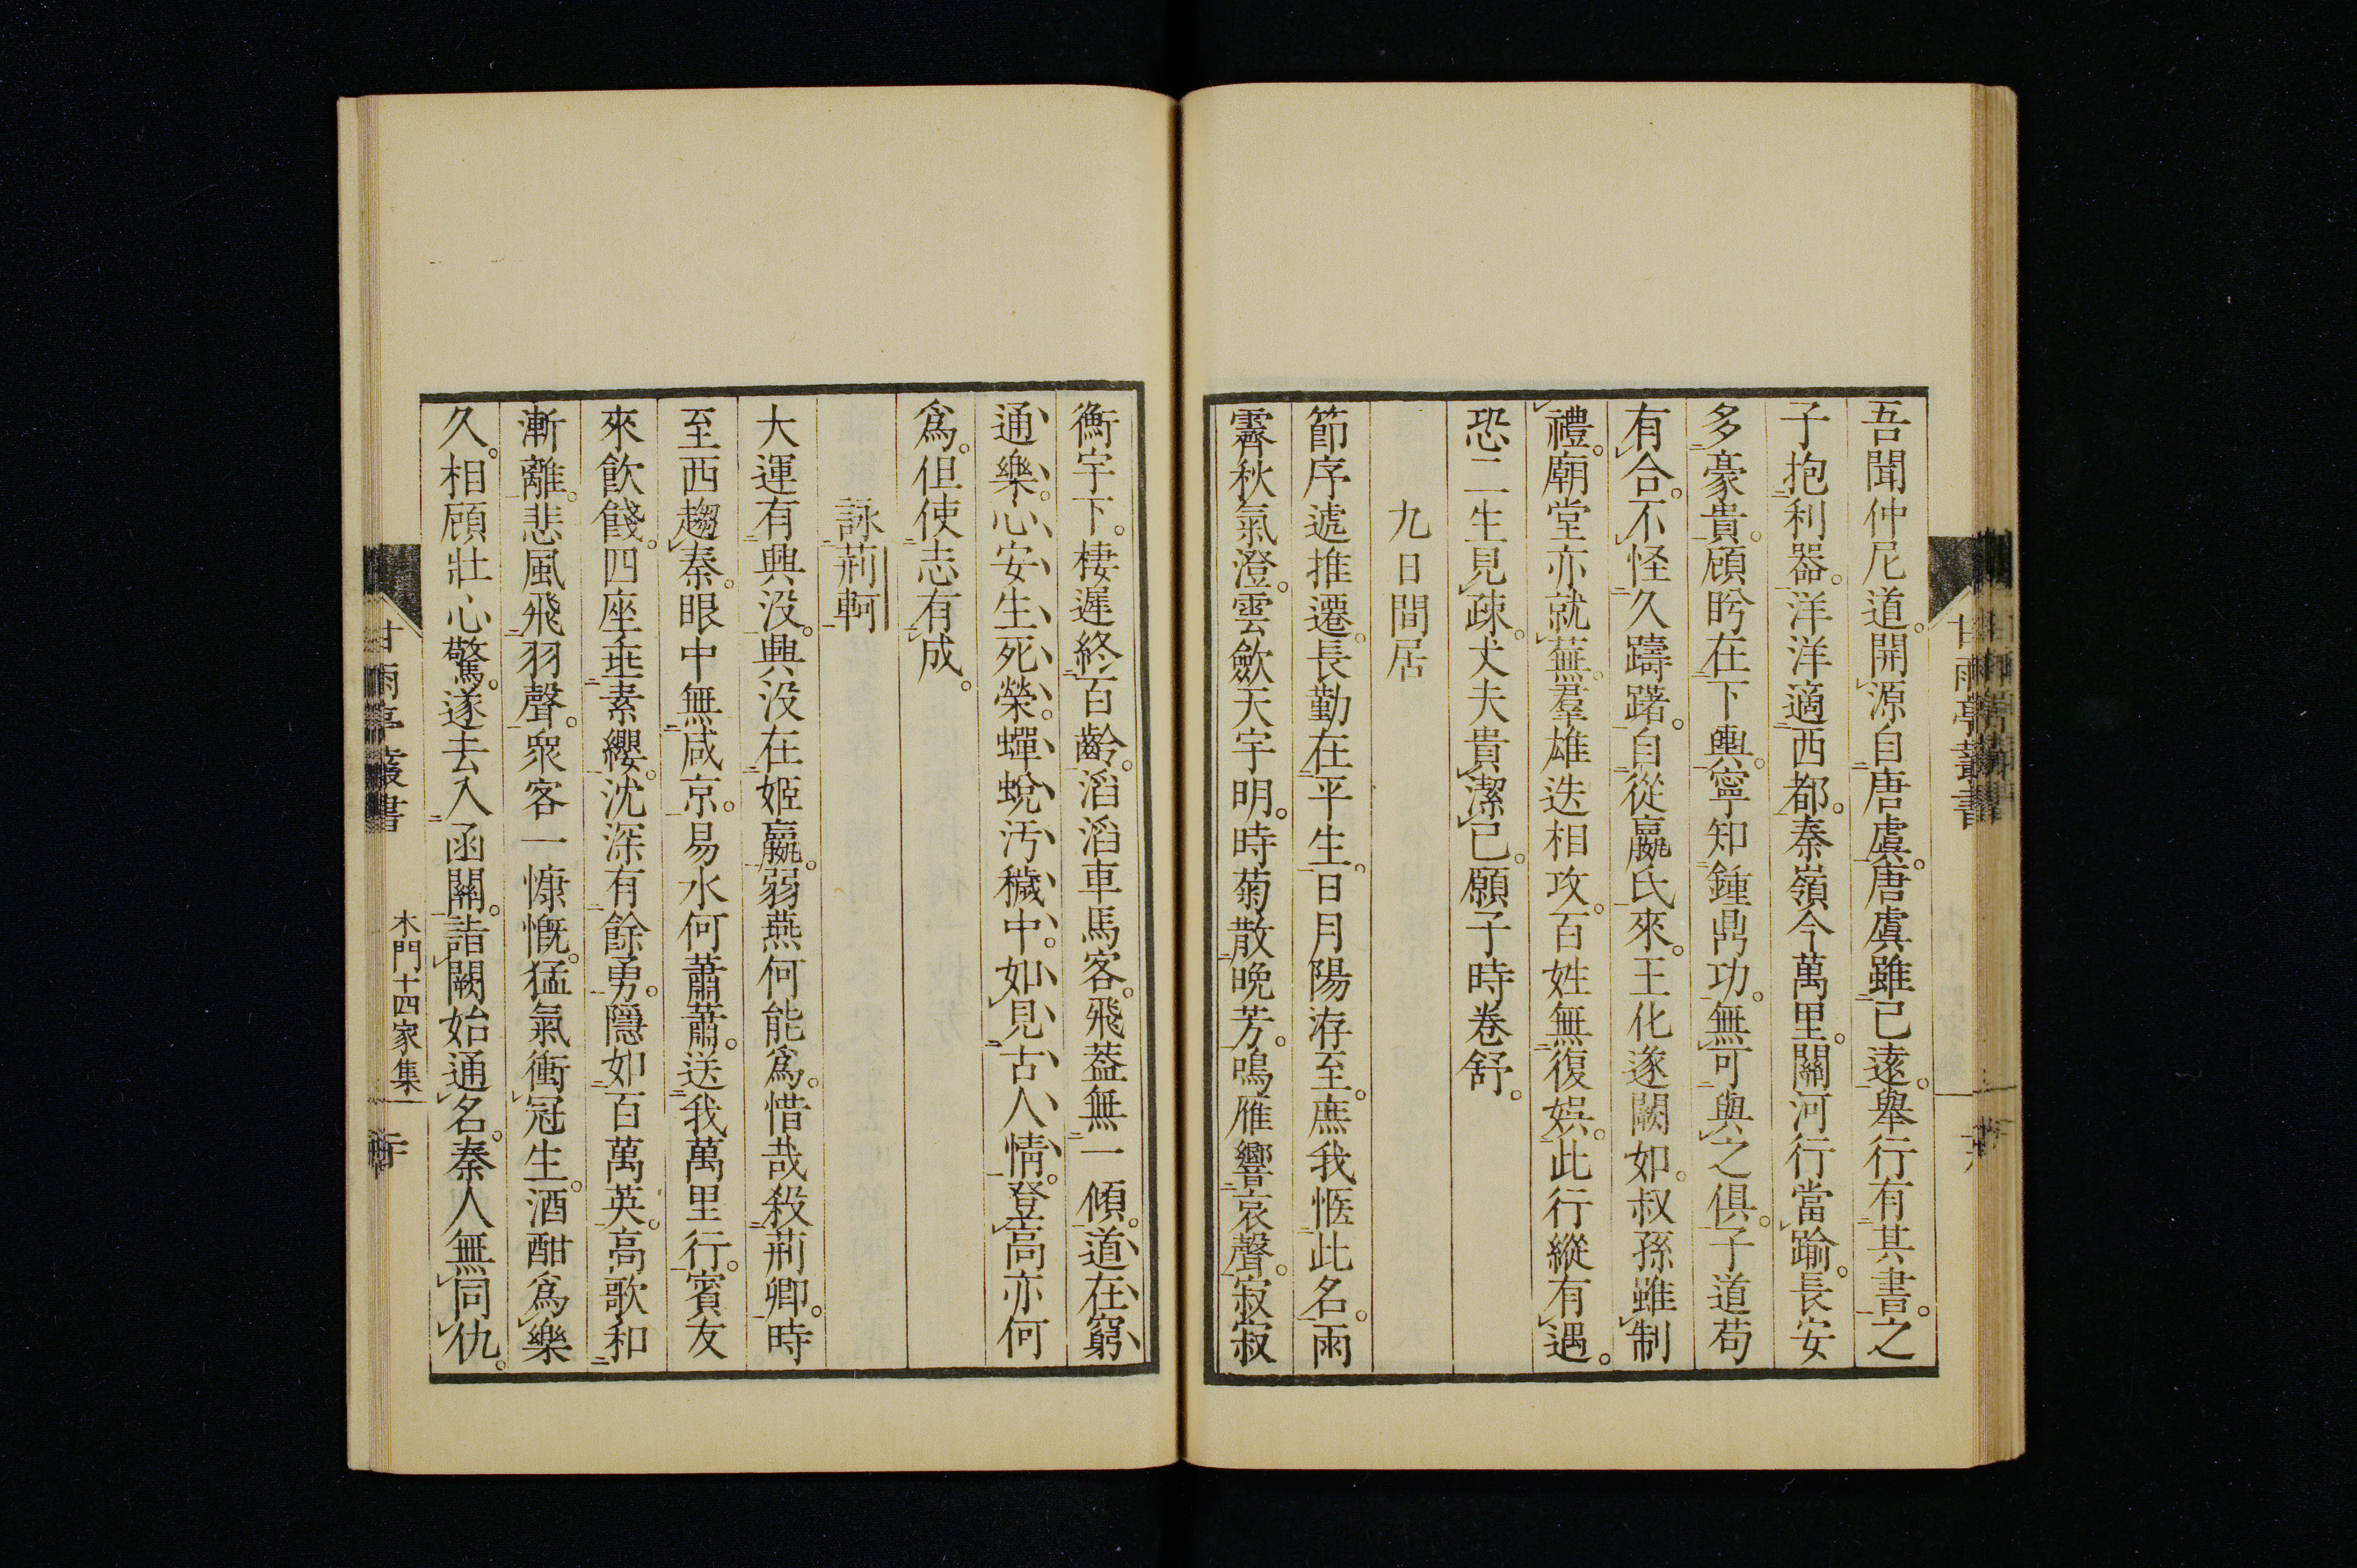 吾聞仲尼道。開源自唐虞。唐虞雖已遠。舉行有其書。之
子抱利器。洋洋適西都。秦嶺今萬里。關河行當踰。長安
多豪貴。顧眄在下輿。寧知鍾鼎功。無可與之俱。子道苟
有合。不怪久躊躇。自從嬴氏來。王化遂闕如。叔孫雖制
禮。廟堂亦就蕪。羣雄迭相攻。百姓無復娯。此行縱有遇。
恐二生見疎。丈夫貴潔已。願子時卷舒。
九日間居
節序遞推遷。長勤在平生。日月陽洊至。廡我愜此名。雨
霽秋氣澄。雲斂天宇明。時菊散晩芳。鳴雁響哀聲。寂寂
衡宇下。棲遲終百齡。滔滔車馬客。飛蓋無一傾。道在窮
通樂。心安生死榮。蟬蛻汚穢中。如見古人情。登高亦何
爲。但使志有成。
詠荊軻
大運有興没。興没在姬嬴。弱燕何能爲。惜哉殺荊卿。時
至西趨秦。眼中無咸京。易水何蕭蕭。送我萬里行。賓友
來飮餞。四座垂素纓。沈深有餘勇。隱如百萬英。高歌和
漸離。悲風飛羽聲。衆客一慷慨。猛氣衝冠生。酒酣爲樂
久。相顧壯心驚。遂去入函關。詣闕始通名。秦人無同仇。
甘雨亭叢書
木門十四家集
甘雨亭叢書